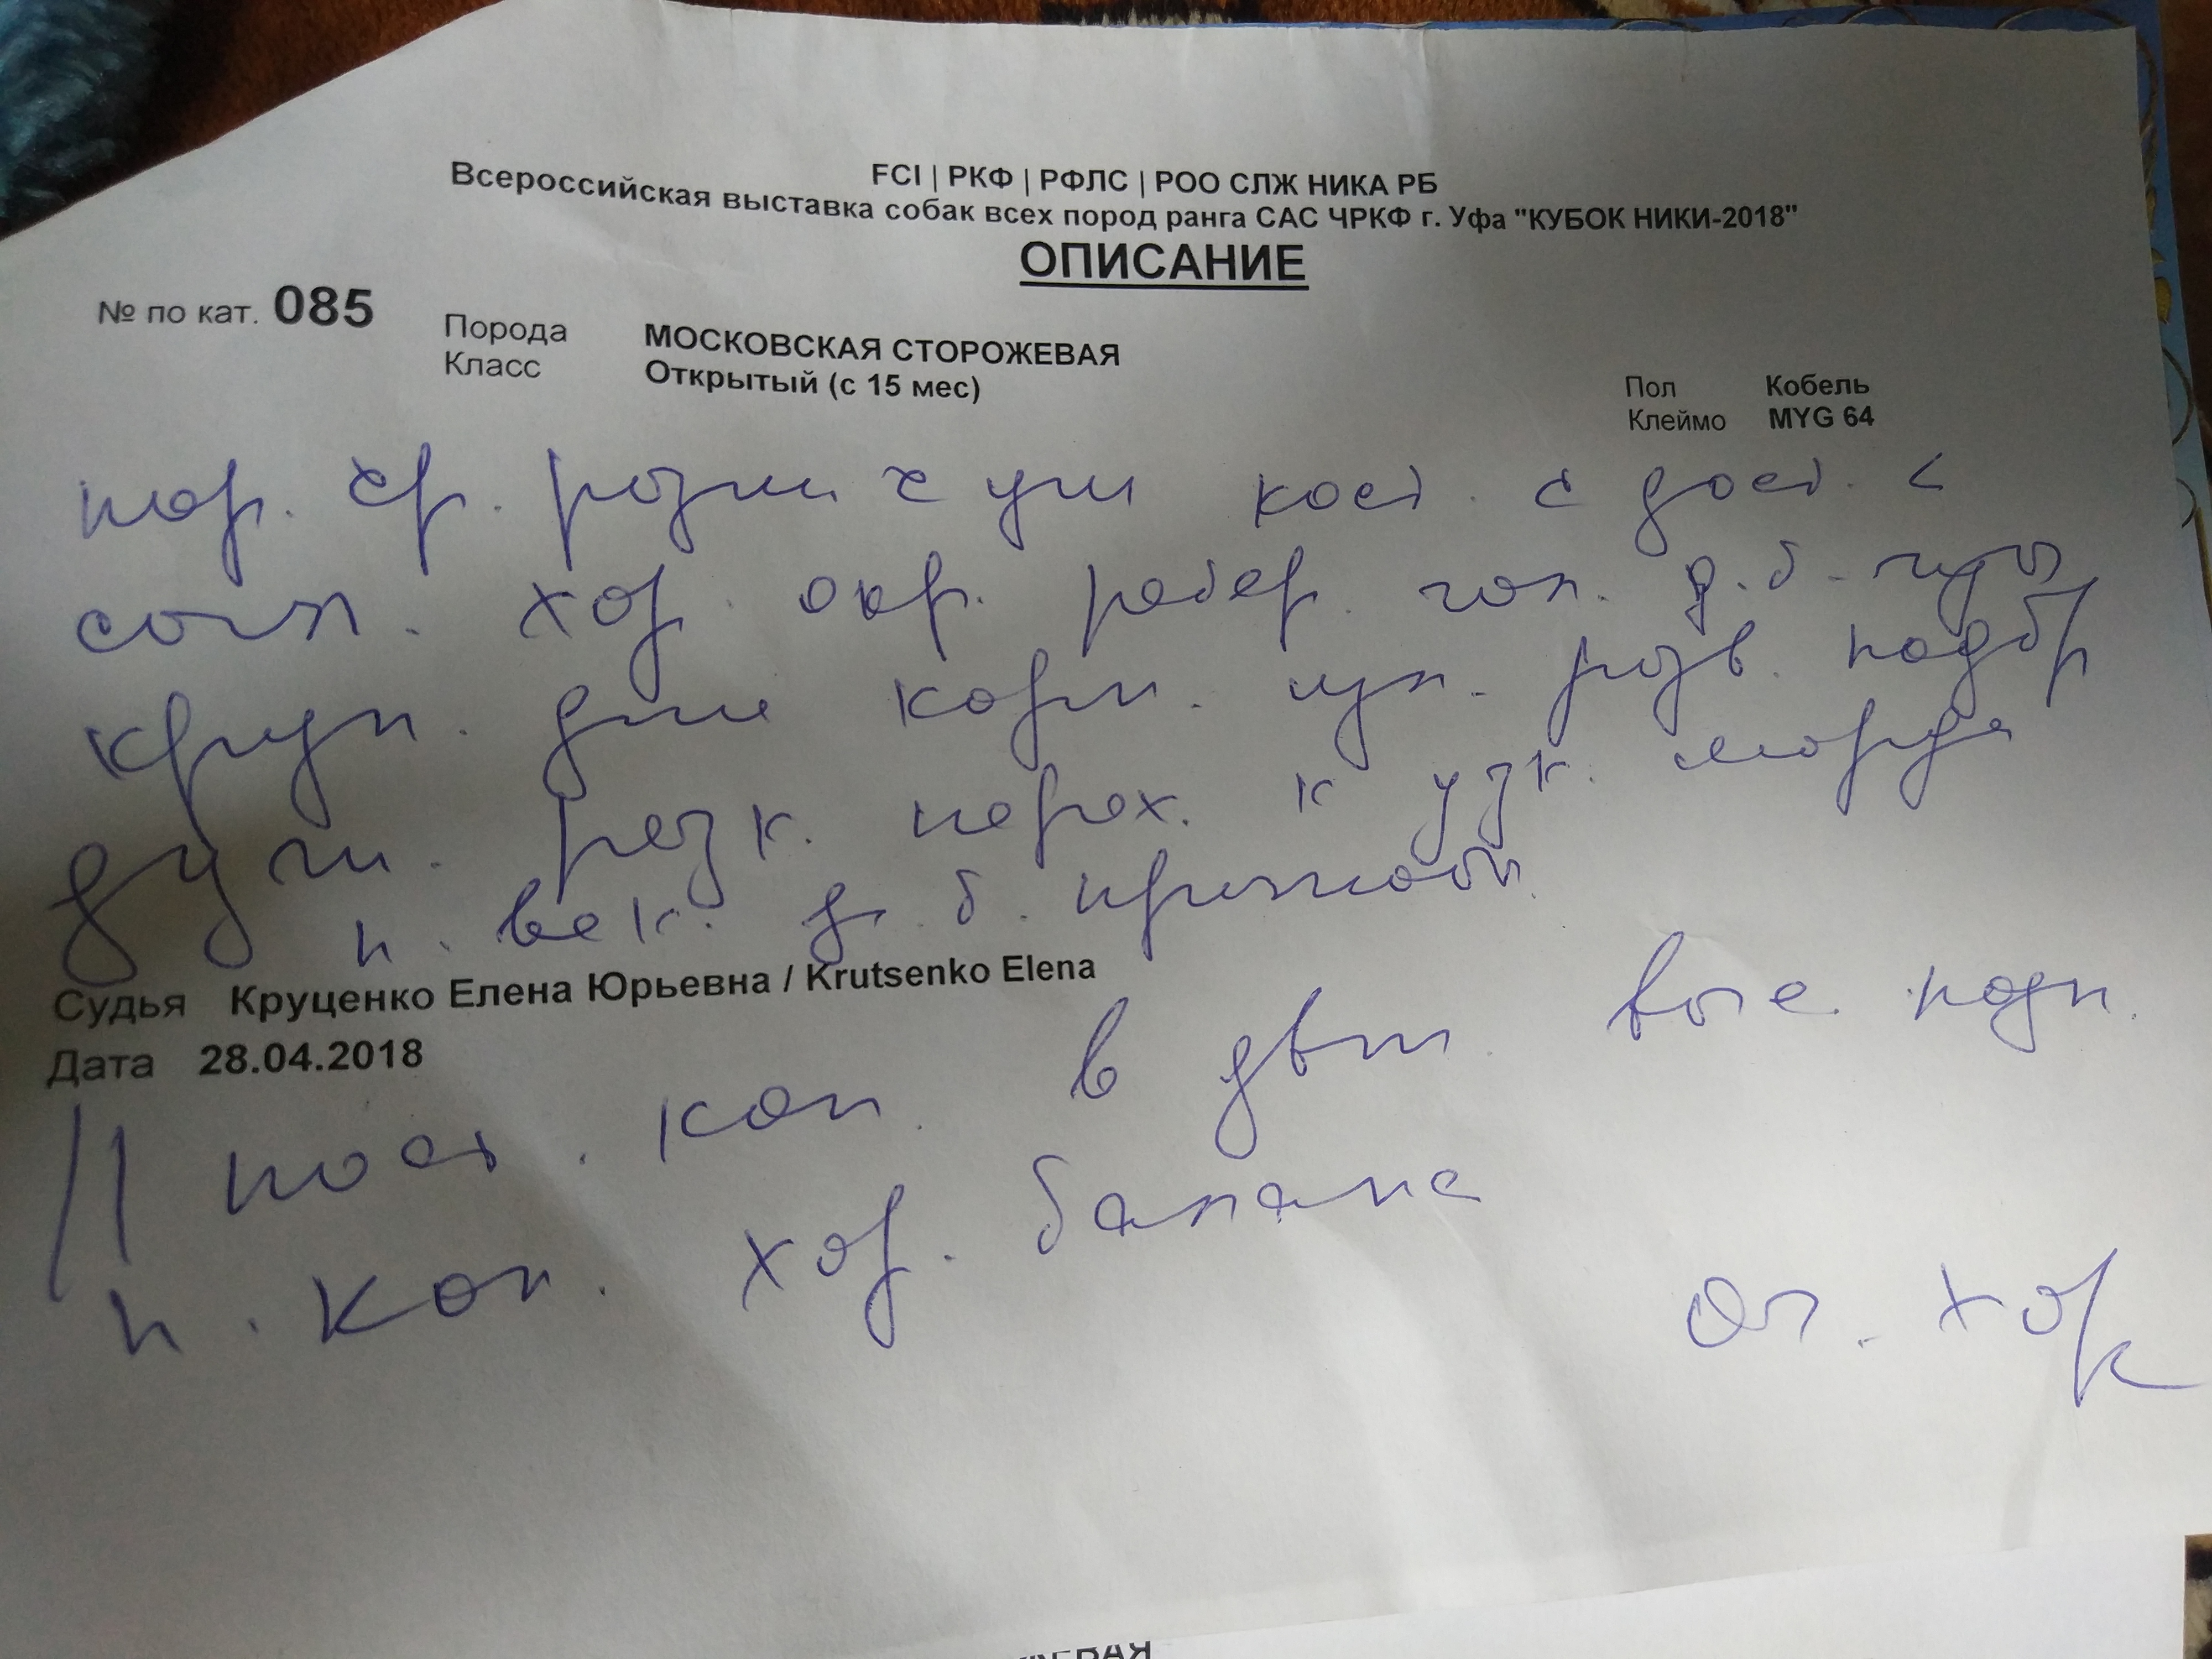 FCI | РКФ | РФЛС | РОО СЛЖ НИКА РБ
Всероссийская выставка собак всех пород ранга САС ЧРКФ г. Уфа "КУБОК НИКИ-2018"
ОПИСАНИЕ
№ по кат. 085
Порода МОСКОВСКАЯ СТОРОЖЕВАЯ
Класс Открытый (с 15 мес)
Пол Кобель
Клеймо MYG 64
кост. с дост. с
хор. окр. гол. д.б.
круп. корп. разв. подбр
резк. перех. к узк. морде
п. век. д.б.
Судья Круценко Елена Юрьевна / Krutsenko Elena
Дата 28.04.2018
пост. кон. в движ. выс. подн.
п. кон. хор. баланс
Оч. хор
ЖЕВАЯ